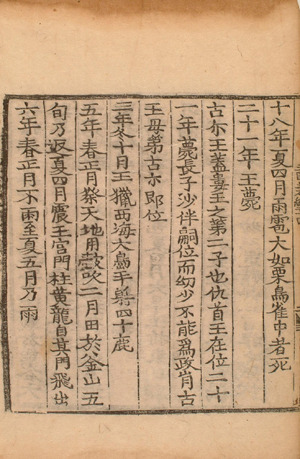 十八年夏四月雨雹大如栗鳥雀中者死
二十一年王薨
古尒王蓋婁王之第二子也仇首王在位二十
一年薨長子沙伴嗣位而幼少不能爲政肖古
王母弟古尒即位
三年冬十月王獵西海大島手射四十鹿
五年春正月祭天地用鼓吹二月田於釜山五
旬乃返夏四月震王宮門柱黃龍自其門飛出
六年春正月不雨至夏五月乃雨